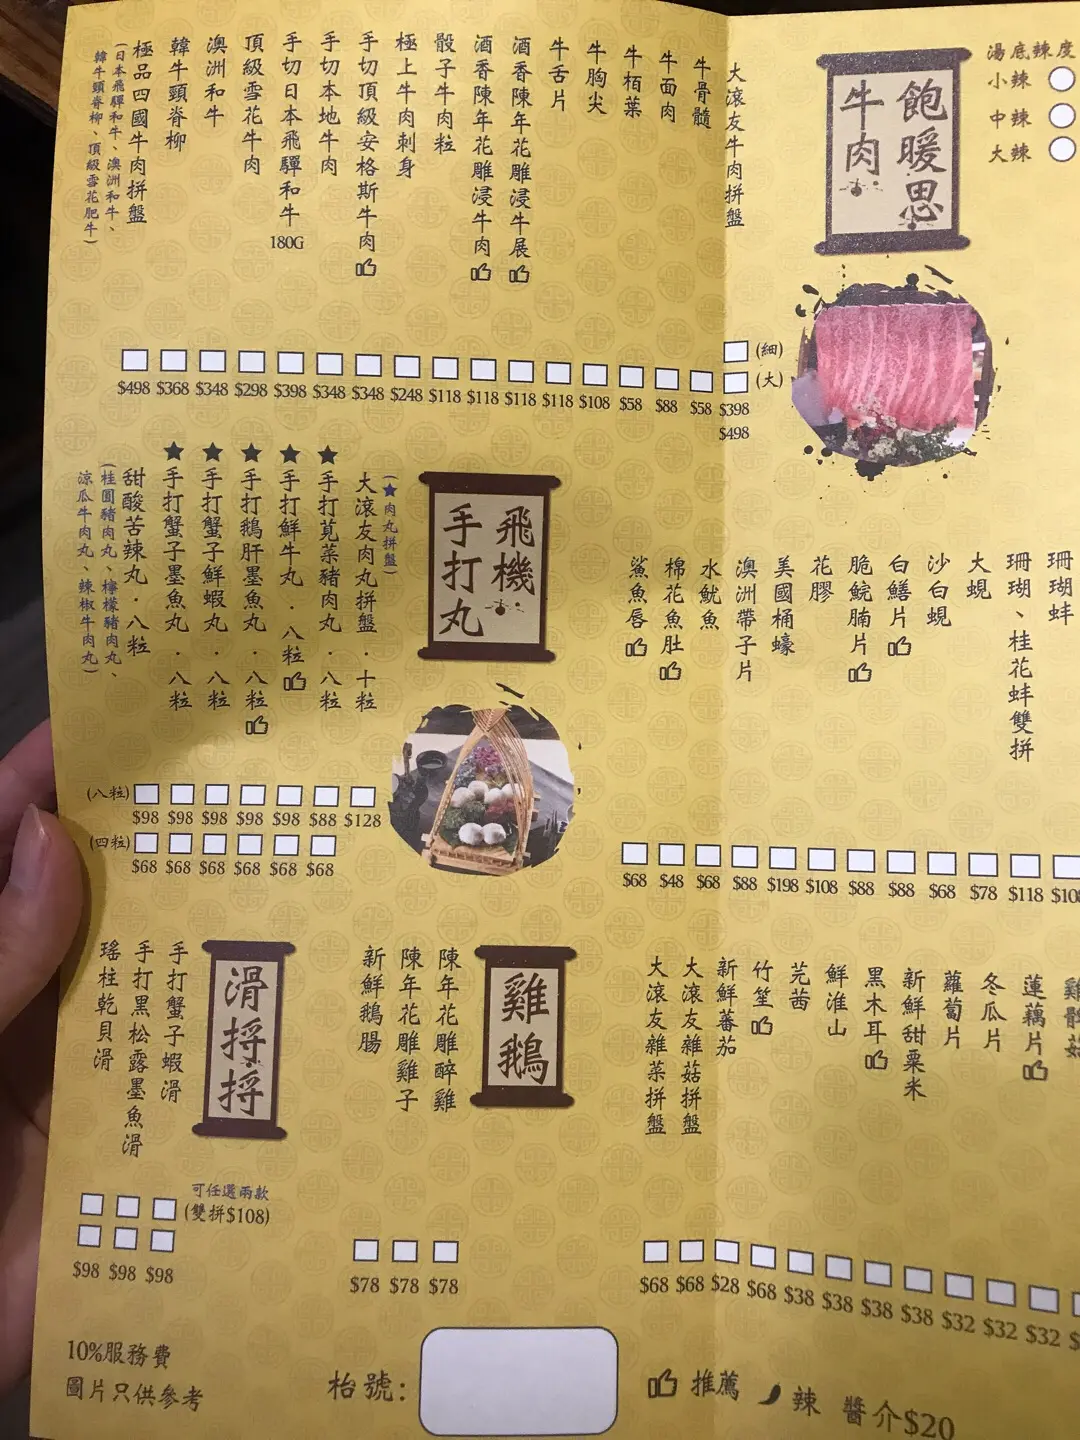 湯底辣度
小辣
中辣
大辣
飽暖思
牛肉
大滾友牛肉拼盤
牛骨髓
牛面肉
牛栢葉
牛胸尖
牛舌片
酒香陳年花雕浸牛展
酒香陳年花雕浸牛肉
骰子牛肉粒
極上牛肉刺身
手切頂級安格斯牛肉
手切本地牛肉
手切日本飛驒和牛 180G
頂級雪花牛肉
澳洲和牛
韓牛頸脊柳
極品四國牛肉拼盤
(日本飛驒和牛、澳洲和牛、
韓牛頸脊柳、頂級雪花肥牛)
(細)
(大)
$498 $368 $348 $298 $398 $348 $348 $248 $118 $118 $118 $118 $108 $58 $88 $58 $398
$498
飛機
手打丸
(★肉丸拼盤)
大滾友肉丸拼盤．十粒
★手打莧菜豬肉丸．八粒
★手打鮮牛丸．八粒
★手打鵝肝墨魚丸．八粒
★手打蟹子鮮蝦丸．八粒
★手打蟹子墨魚丸．八粒
甜酸苦辣丸．八粒
(桂圓豬肉丸、檸檬豬肉丸、
涼瓜牛肉丸、辣椒牛肉丸)
(八粒)
$98 $98 $98 $98 $98 $88 $128
(四粒)
$68 $68 $68 $68 $68 $68
珊瑚蚌
珊瑚、桂花蚌雙拼
大蜆
沙白蜆
白鱔片
脆鯇腩片
花膠
美國桶蠔
澳洲帶子片
水魷魚
棉花魚肚
鯊魚唇
$68 $48 $68 $88 $198 $108 $88 $88 $68 $78 $118
滑捋捋
手打蟹子蝦滑
手打黑松露墨魚滑
瑤柱乾貝滑
可任選兩款
(雙拼$108)
$98 $98 $98
雞鵝
陳年花雕醉雞
陳年花雕雞子
新鮮鵝腸
$78 $78 $78
蓮藕片
冬瓜片
蘿蔔片
新鮮甜粟米
黑木耳
鮮淮山
芫茜
竹笙
新鮮蕃茄
大滾友雜菇拼盤
大滾友雜菜拼盤
$68 $68 $28 $68 $38 $38 $38 $38 $32 $32 $32
10%服務費
圖片只供參考
枱號：
推薦
辣
醬介$20